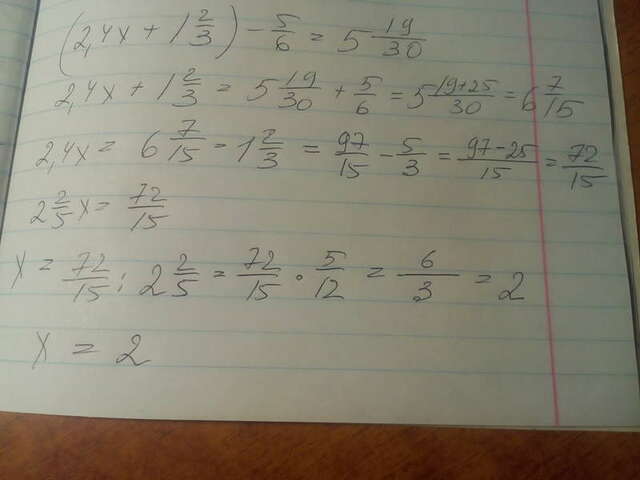 (2,4x + 1 2/3) - 5/6 = 5 19/30
2,4x + 1 2/3 = 5 19/30 + 5/6 = 5 19+25/30 = 6 7/15
2,4x = 6 7/15 = 1 2/3 = 97/15 - 5/3 = 97-25/15 = 72/15
2 2/5 x = 72/15
x = 72/15 : 2 2/5 = 72/15 · 5/12 = 6/3 = 2
x = 2